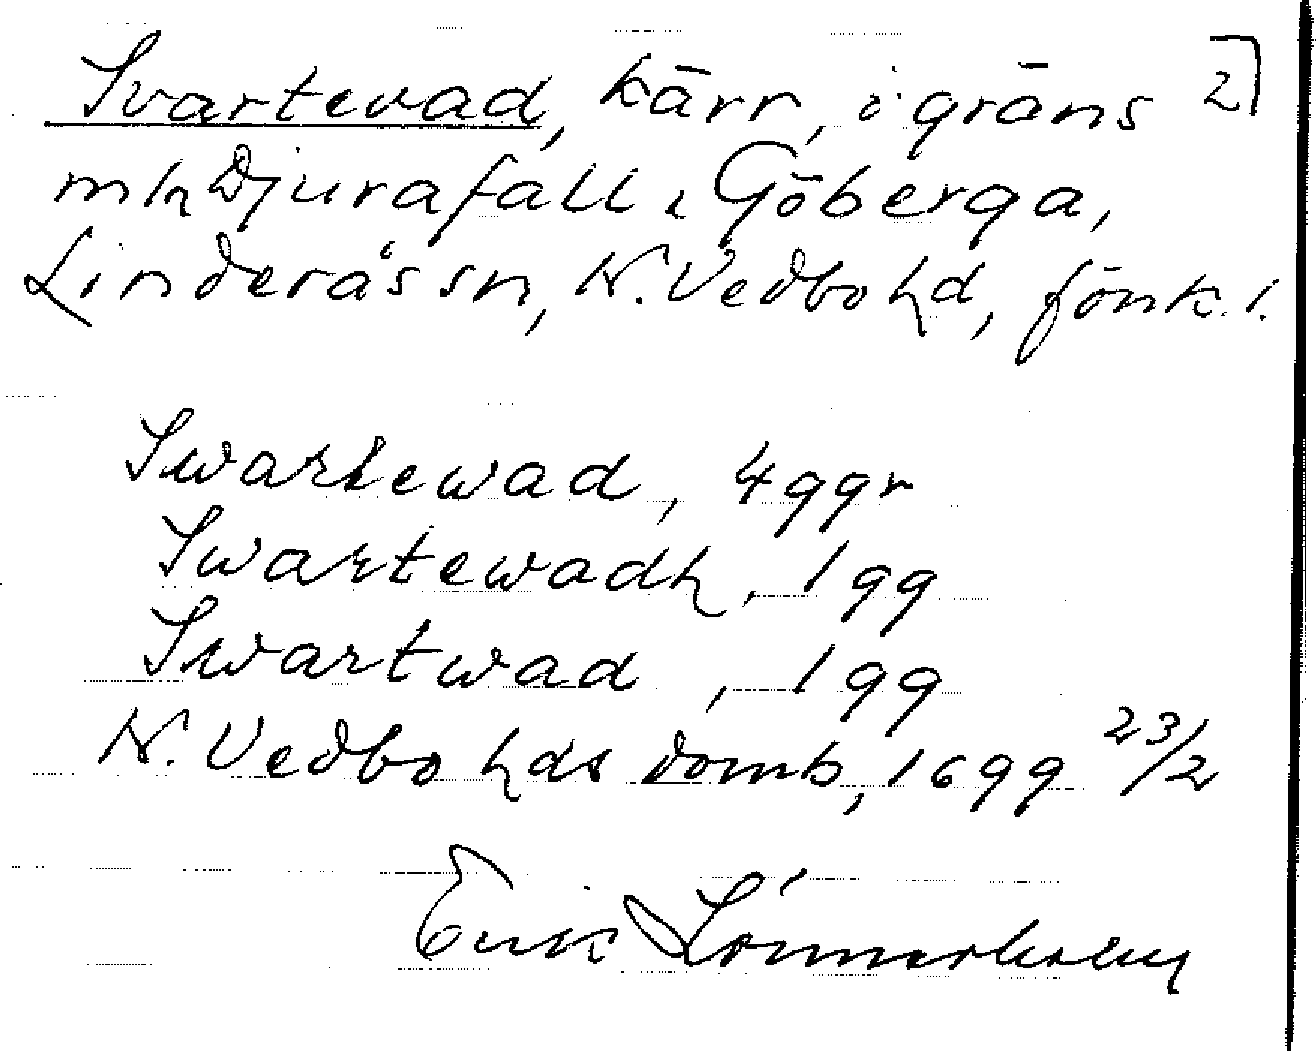 Svartevad, kärr, i gräns 2]
mln Djurafall i Göberga,
Linderås sn, N. Vedbo hd, Jönk. l.
Swartewad, 4 ggr
Swartewadh, 1 gg
Swartwad, 1 gg
N. Vedbo hds domb, 1699 23/2
Erik Lönnerholm